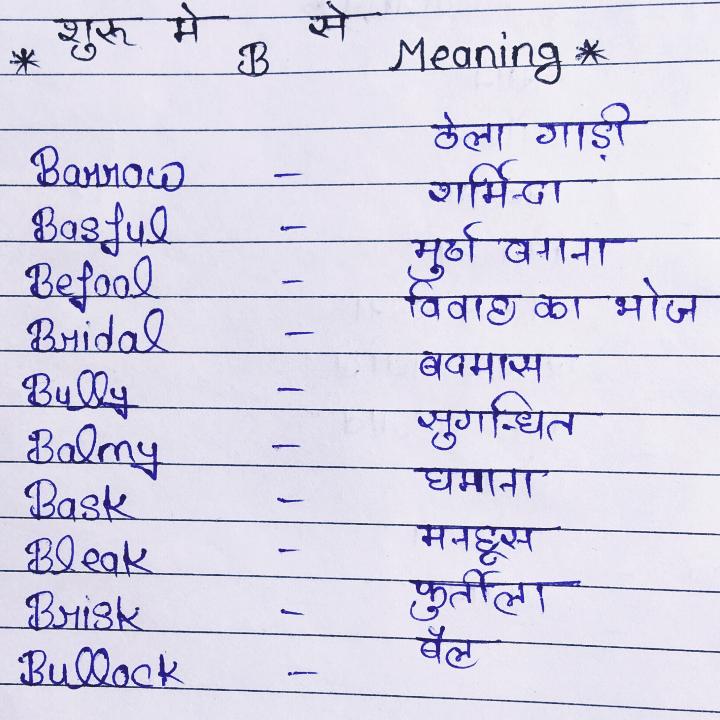 * शुरू मे B से Meaning *
Barrow - ठेला गाड़ी
Basful - शर्मिन्दा
Befool - मुर्ख बनाना
Bridal - विवाह का भोज
Bully - बदमास
Balmy - सुगन्धित
Bask - घमाना
Bleak - मनहूस
Brisk - फुर्तीला
Bullock - बैल